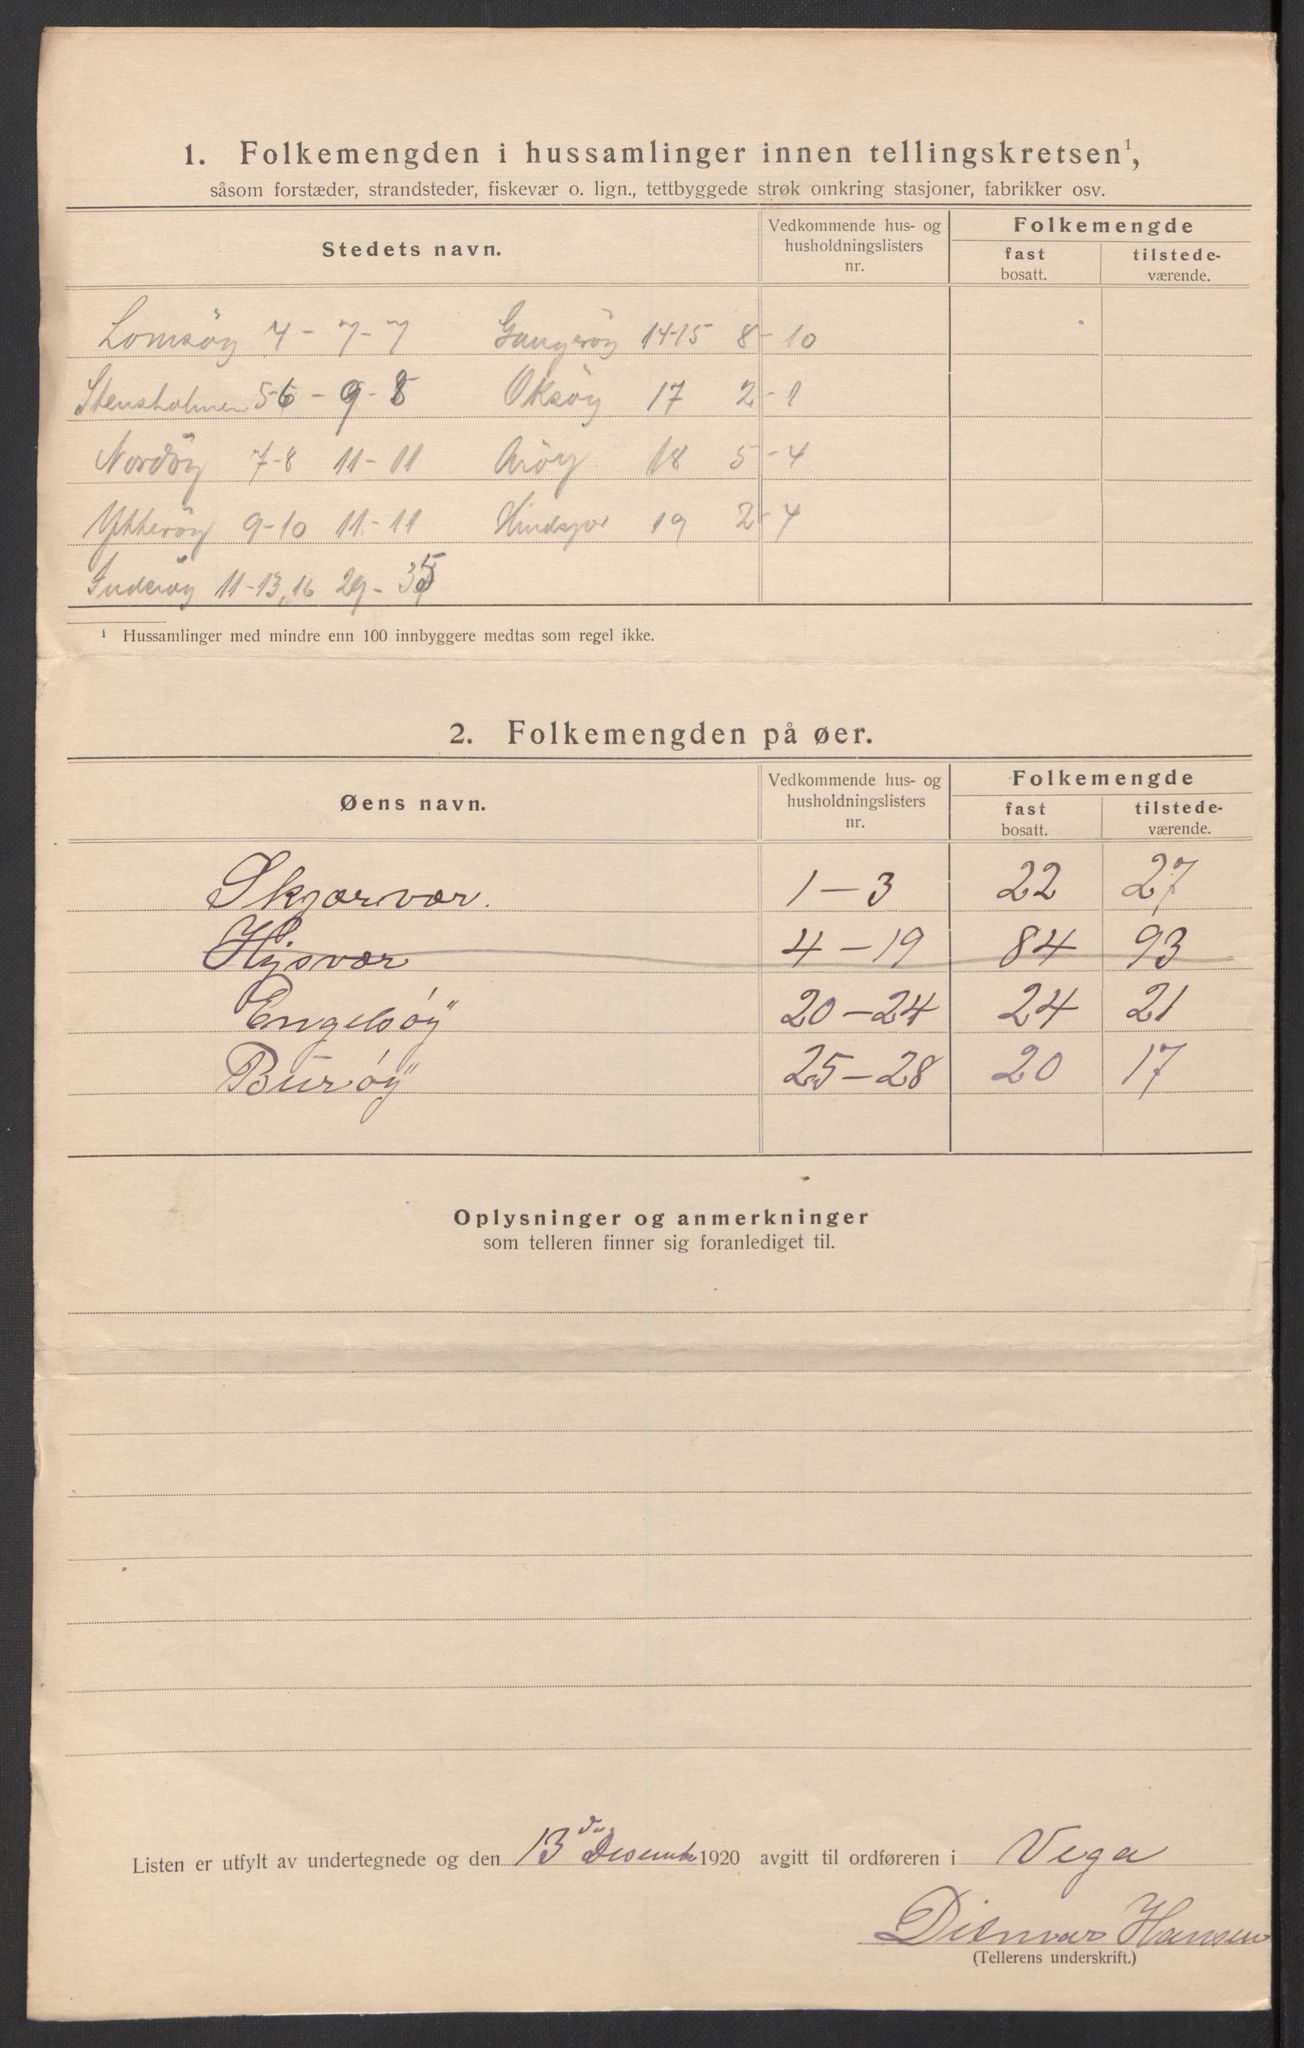 1. Folkemengden i hussamlinger innen tellingskretsen¹,
såsom forstæder, strandsteder, fiskevær o. lign., tettbyggede strøk omkring stasjoner, fabrikker osv.
Stedets navn.
Vedkommende hus- og husholdningslisters nr.
Folkemengde
fast bosatt.
tilstede-værende.
Lomsöy 4 - 7 - 7 Gangeröy 14-15 8 - 10
Stensholmen 5-6 - 9 - 8 Oksöy 17 2 - 1
Nordöy 7-8 11-11 Aröy 18 5 - 4
Ytteröy 9-10 11-11 19 2 - 4
Inderöy 11-13, 16 29 - 35
¹ Hussamlinger med mindre enn 100 innbyggere medtas som regel ikke.
2. Folkemengden på øer.
Øens navn.
Vedkommende hus- og husholdningslisters nr.
Folkemengde
fast bosatt.
tilstede-værende.
Skjærvær. 1-3 22 27
Hysvær 4-19 84 93
Engelsöy 20-24 24 21
Buröy 25-28 20 17
Oplysninger og anmerkninger
som telleren finner sig foranlediget til.
Listen er utfylt av undertegnede og den 13 Desembr 1920 avgitt til ordføreren i Vega
Ditmar Hansen
(Tellerens underskrift.)